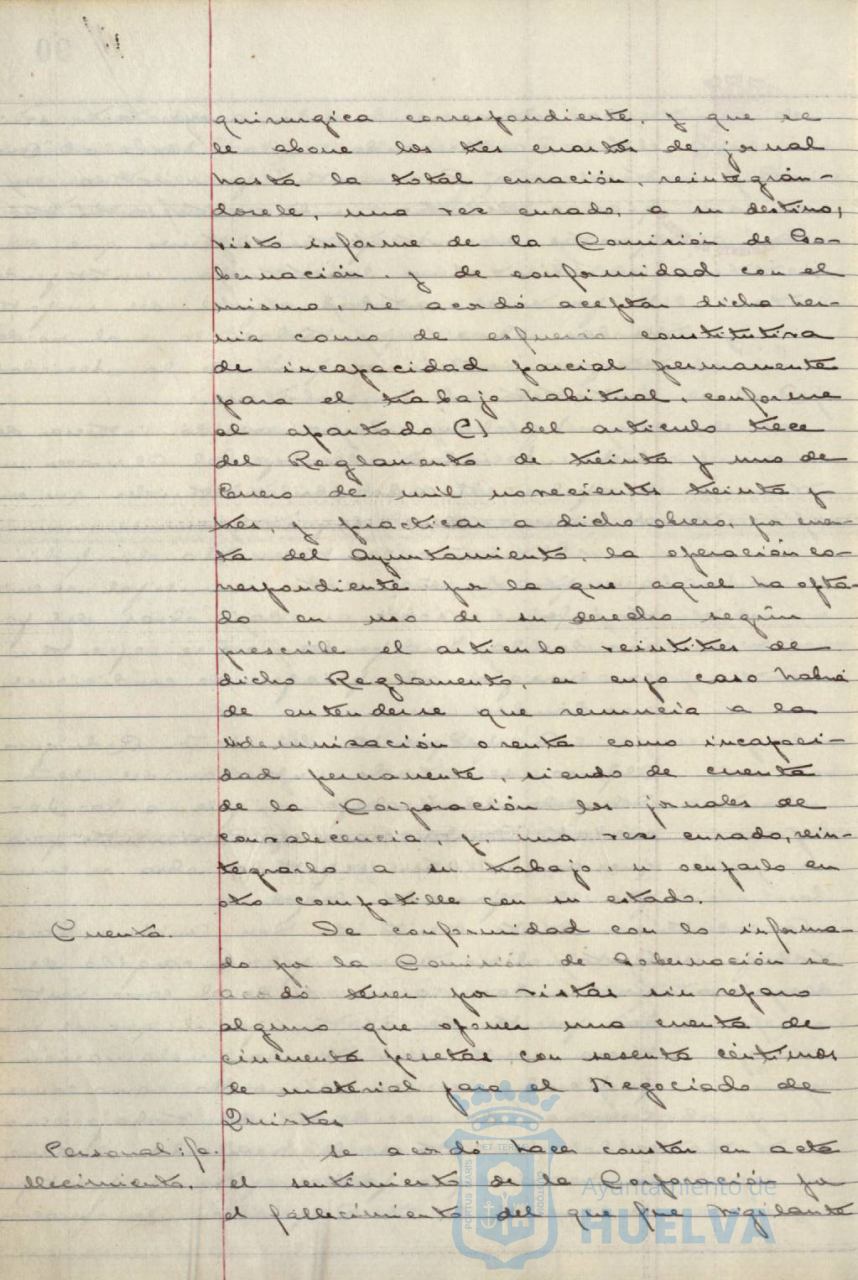 quirurgica correspondiente, y que se
le abone los tres cuartos de jornal
hasta la total curación, reintegrán-
dosele, una vez curado, a su destino,
visto informe de la Comisión de Go-
bernación, y de conformidad con el
mismo, se acordó aceptar dicha her-
nia como de esfuerzo constitutiva
de incapacidad parcial permanente
para el trabajo habitual, conforme
al apartado C) del articulo trece
del Reglamento de treinta y uno de
Enero de mil novecientos treinta y
tres, y practicar a dicho obrero, por cuen-
ta del Ayuntamiento, la operación co-
rrespondiente por la que aquel ha opta-
do en uso de su derecho según
prescribe el articulo veintitres de
dicho Reglamento, en cuyo caso habrá
de entenderse que renuncia a la
indemnización o renta como incapaci-
dad permanente, siendo de cuenta
de la Corporación los jornales de
convalecencia, y, una vez curado, rein-
tegrarlo a su trabajo, u ocuparlo en
otro compatible con su estado.
Cuenta. De conformidad con lo informa-
do por la Comisión de Gobernación se
acordó tener por vistas sin reparo
alguno que oponer una cuenta de
cincuenta pesetas con sesenta céntimos
de material para el Negociado de
Quintas
Personal: fa- se acordó hacer constar en acta
llecimiento. el sentimiento de la Corporación por
el fallecimiento del que fue vigilante
Ayuntamiento de
HUELVA